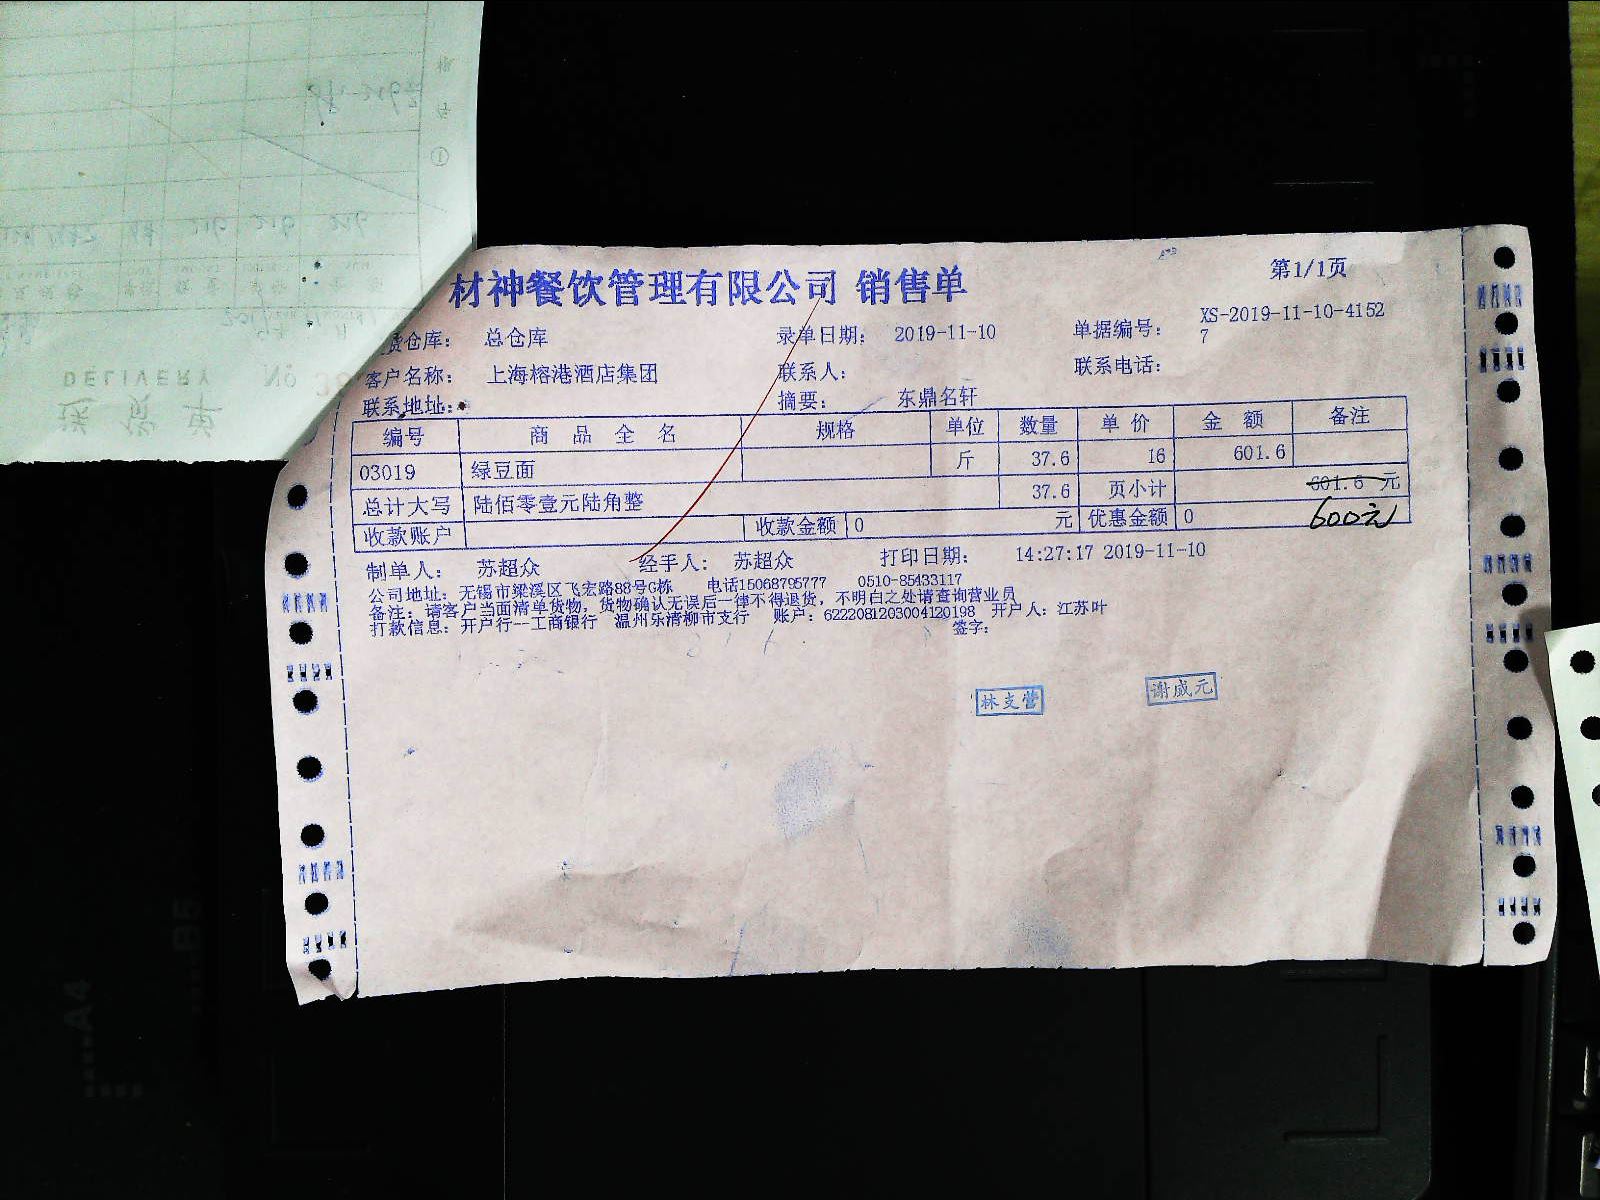 材神餐饮管理有限公司 销售单
第1/1页
货仓库： 总仓库 录单日期： 2019-11-10 单据编号： XS-2019-11-10-4152
7
客户名称： 上海榕港酒店集团 联系人： 联系电话：
联系地址： 摘要： 东鼎名轩
编号 商 品 全 名 规格 单位 数量 单 价 金 额 备注
03019 绿豆面 斤 37.6 16 601.6
总计大写 陆佰零壹元陆角整 37.6 页小计 601.6 元
收款账户 收款金额 0 元 优惠金额 0 600元
制单人： 苏超众 经手人： 苏超众 打印日期： 14:27:17 2019-11-10
公司地址：无锡市梁溪区飞宏路88号G栋 电话15068795777 0510-85433117
备注：请客户当面清单货物，货物确认无误后一律不得退货，不明白之处请查询营业员
打款信息：开户行--工商银行 温州乐清柳市支行 账户：6222081203004120198 开户人：江苏叶
签字：
林支营 谢成元
DELIVERY No
送货单
A4
B5